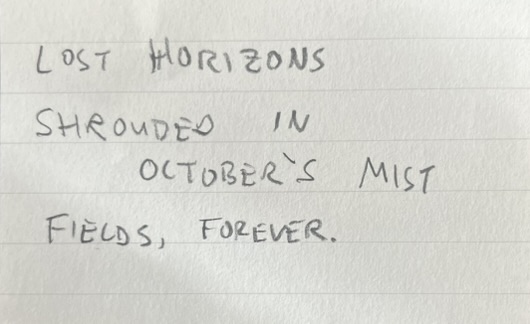 LOST HORIZONS
SHROUDED IN
OCTOBER'S MIST
FIELDS, FOREVER.